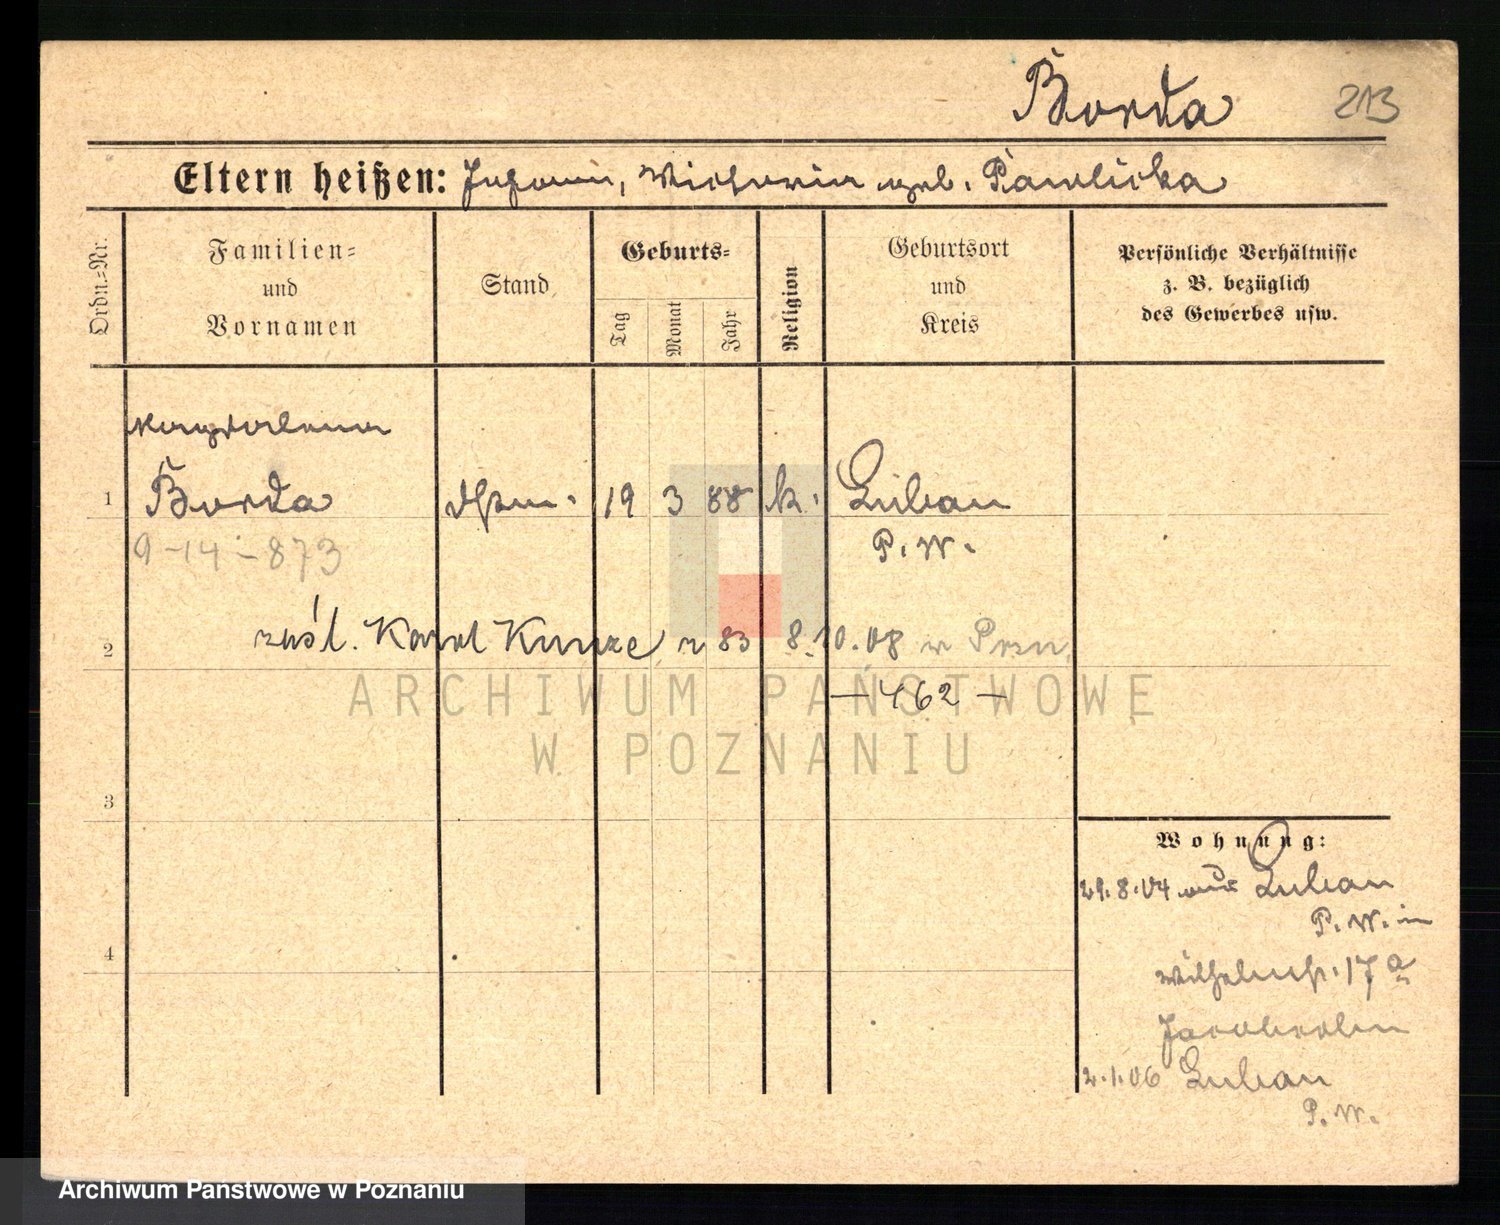 Borda
213
Eltern heißen: Johann, Wictoria geb. Pawlicka
Ordn.=Nr.
Familien=
und
Vornamen
Stand
Geburts=
Tag
Monat
Jahr
Religion
Geburtsort
und
Kreis
Persönliche Verhältnisse
z. B. bezüglich
des Gewerbes usw.
Magdalena
1 Borda 19 3 88 k. Luban
P. W.
9-14-873
2 zaśl. Karol Kunze r 83 8.10.08 w Pzn
-462-
ARCHIWUM PAŃSTWOWE
W POZNANIU
3
Wohnung:
29.8.04 aus Luban
P. W. in
4
Wilhelmstr. 17a
2.1.06 Luban
P. W.
Archiwum Państwowe w Poznaniu